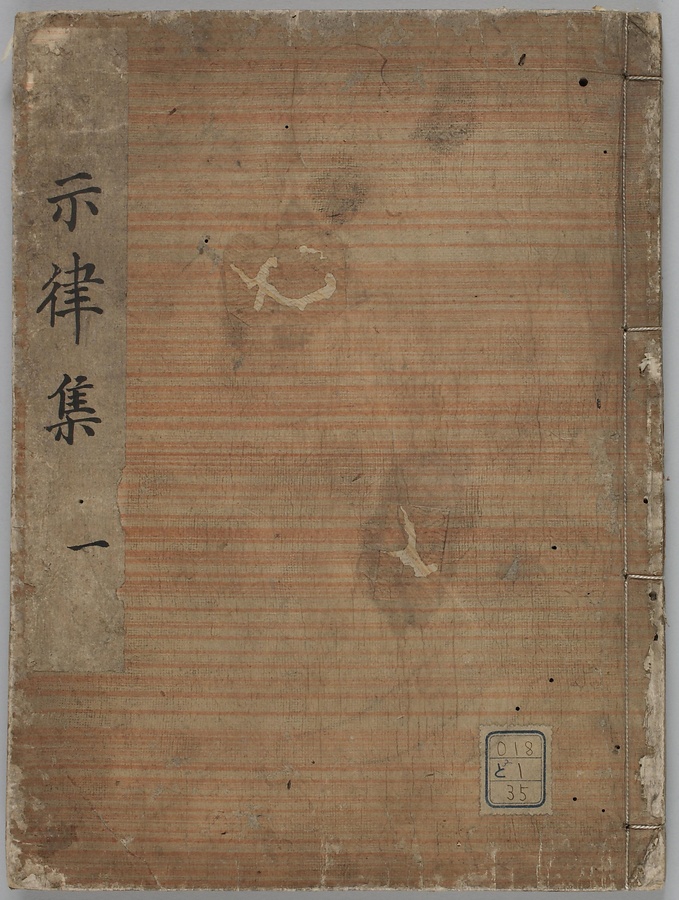 示律集 一
018
ど1
35